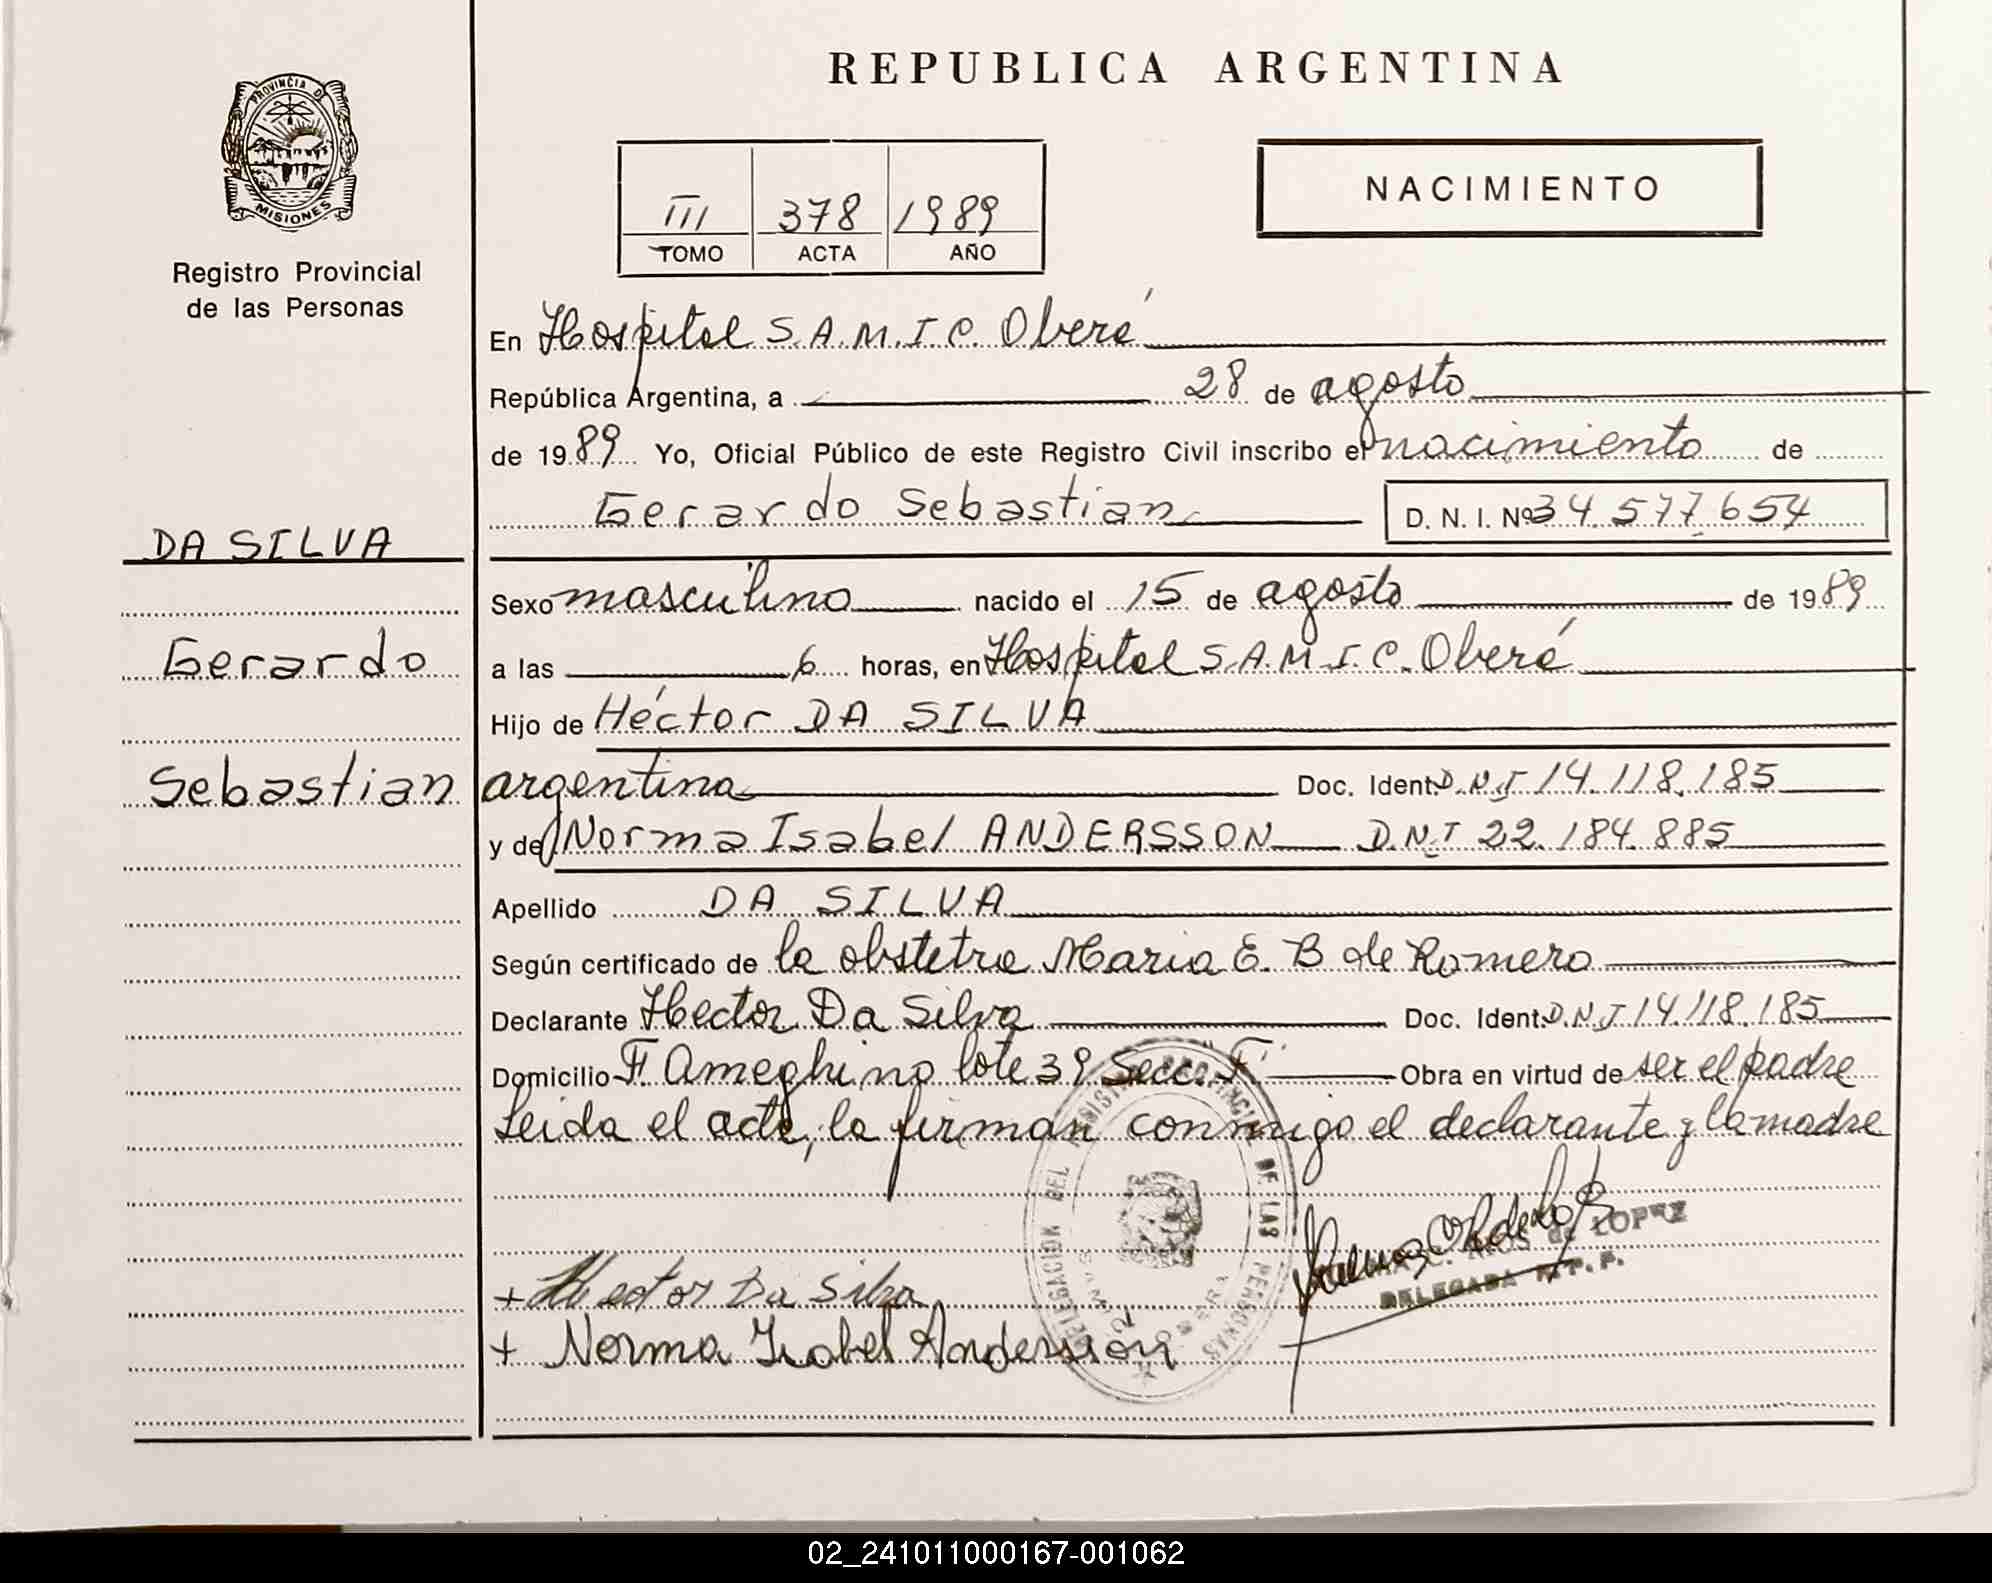 REPUBLICA ARGENTINA
PROVINCIA D
MISIONES
Registro Provincial
de las Personas
III 378 1989
TOMO ACTA AÑO
NACIMIENTO
En Hospital S.A.M.I.C. Oberá
República Argentina, a 28 de agosto
de 1989 Yo, Oficial Público de este Registro Civil inscribo el nacimiento de
Gerardo Sebastian D. N. I. Nº 34.577.654
DA SILVA
Gerardo
Sebastian
Sexo masculino nacido el 15 de agosto de 1989
a las 6 horas, en Hospital S.A.M.I.C. Oberá
Hijo de Héctor DA SILVA
argentina Doc. Ident. D.N.I 14.118.185
y de Norma Isabel ANDERSSON D.N.I 22.184.885
Apellido DA SILVA
Según certificado de la obstetra Maria E. B de Romero
Declarante Hector Da Silva Doc. Ident. D.N.I 14.118.185
Domicilio F. Ameghino lote 39 Secc. "F" Obra en virtud de ser el padre
Leida el acta, la firman conmigo el declarante y la madre
DELEGACION DEL PROVINCIAL DE LAS PERSONAS
de LOPEZ
DELEGADA R.P.P.
+ Hector Da Silva
+ Norma Isabel Andersson
02_241011000167-001062